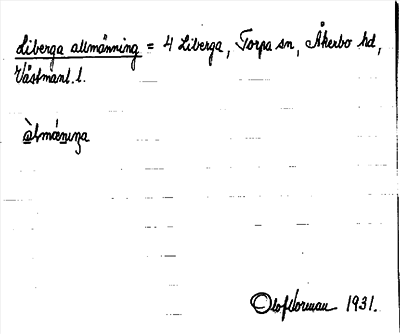 Liberga allmänning = 4 Liberga, Torpa sn, Åkerbo hd,
Västmanl. l.
àlmǽnıŋa
Olof Norman 1931.